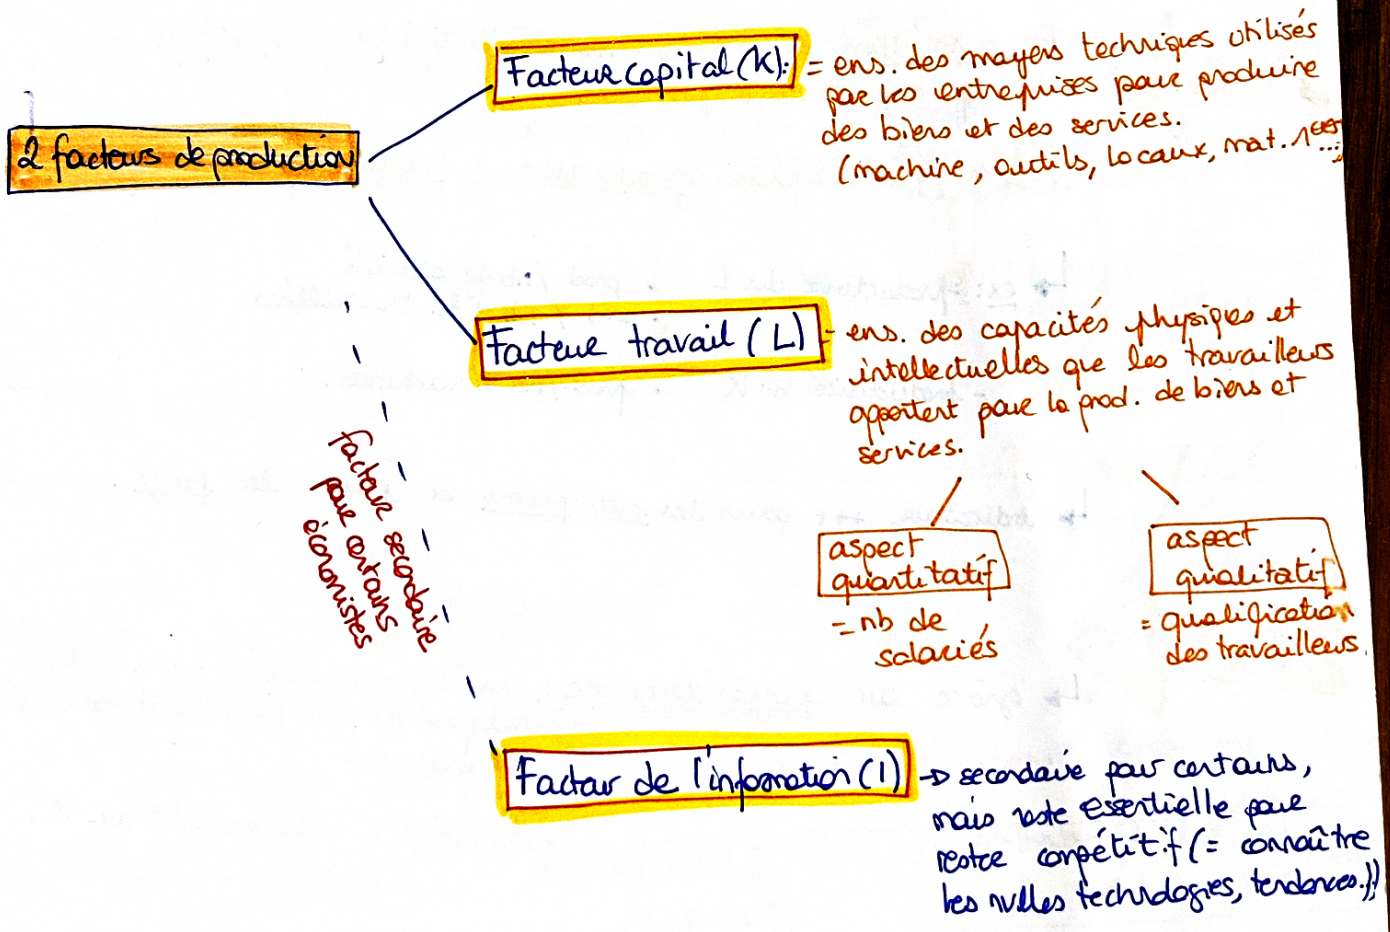 2 facteurs de production
Facteur capital (K):
= ens. des moyens techniques utilisés
par les entreprises pour produire
des biens et des services.
(machine, outils, locaux, mat. 1ères...)
Facteur travail (L)
= ens. des capacités physiques et
intellectuelles que les travailleurs
apportent pour la prod. de biens et
services.
aspect
quantitatif
= nb de
salariés
aspect
qualitatif
= qualification
des travailleurs.
facteur secondaire
pour certains
économistes
Facteur de l'information (I)
→ secondaire pour certains,
mais reste essentielle pour
rester compétitif (= connaître
les nvlles technologies, tendances..))